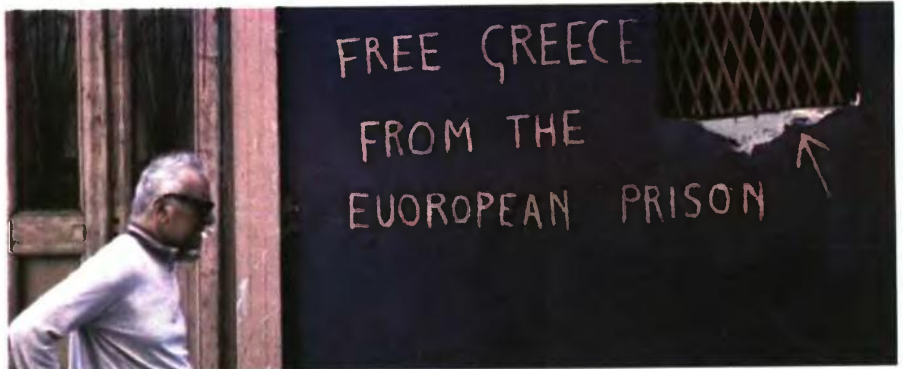 FREE GREECE
FROM THE
EUOROPEAN PRISON